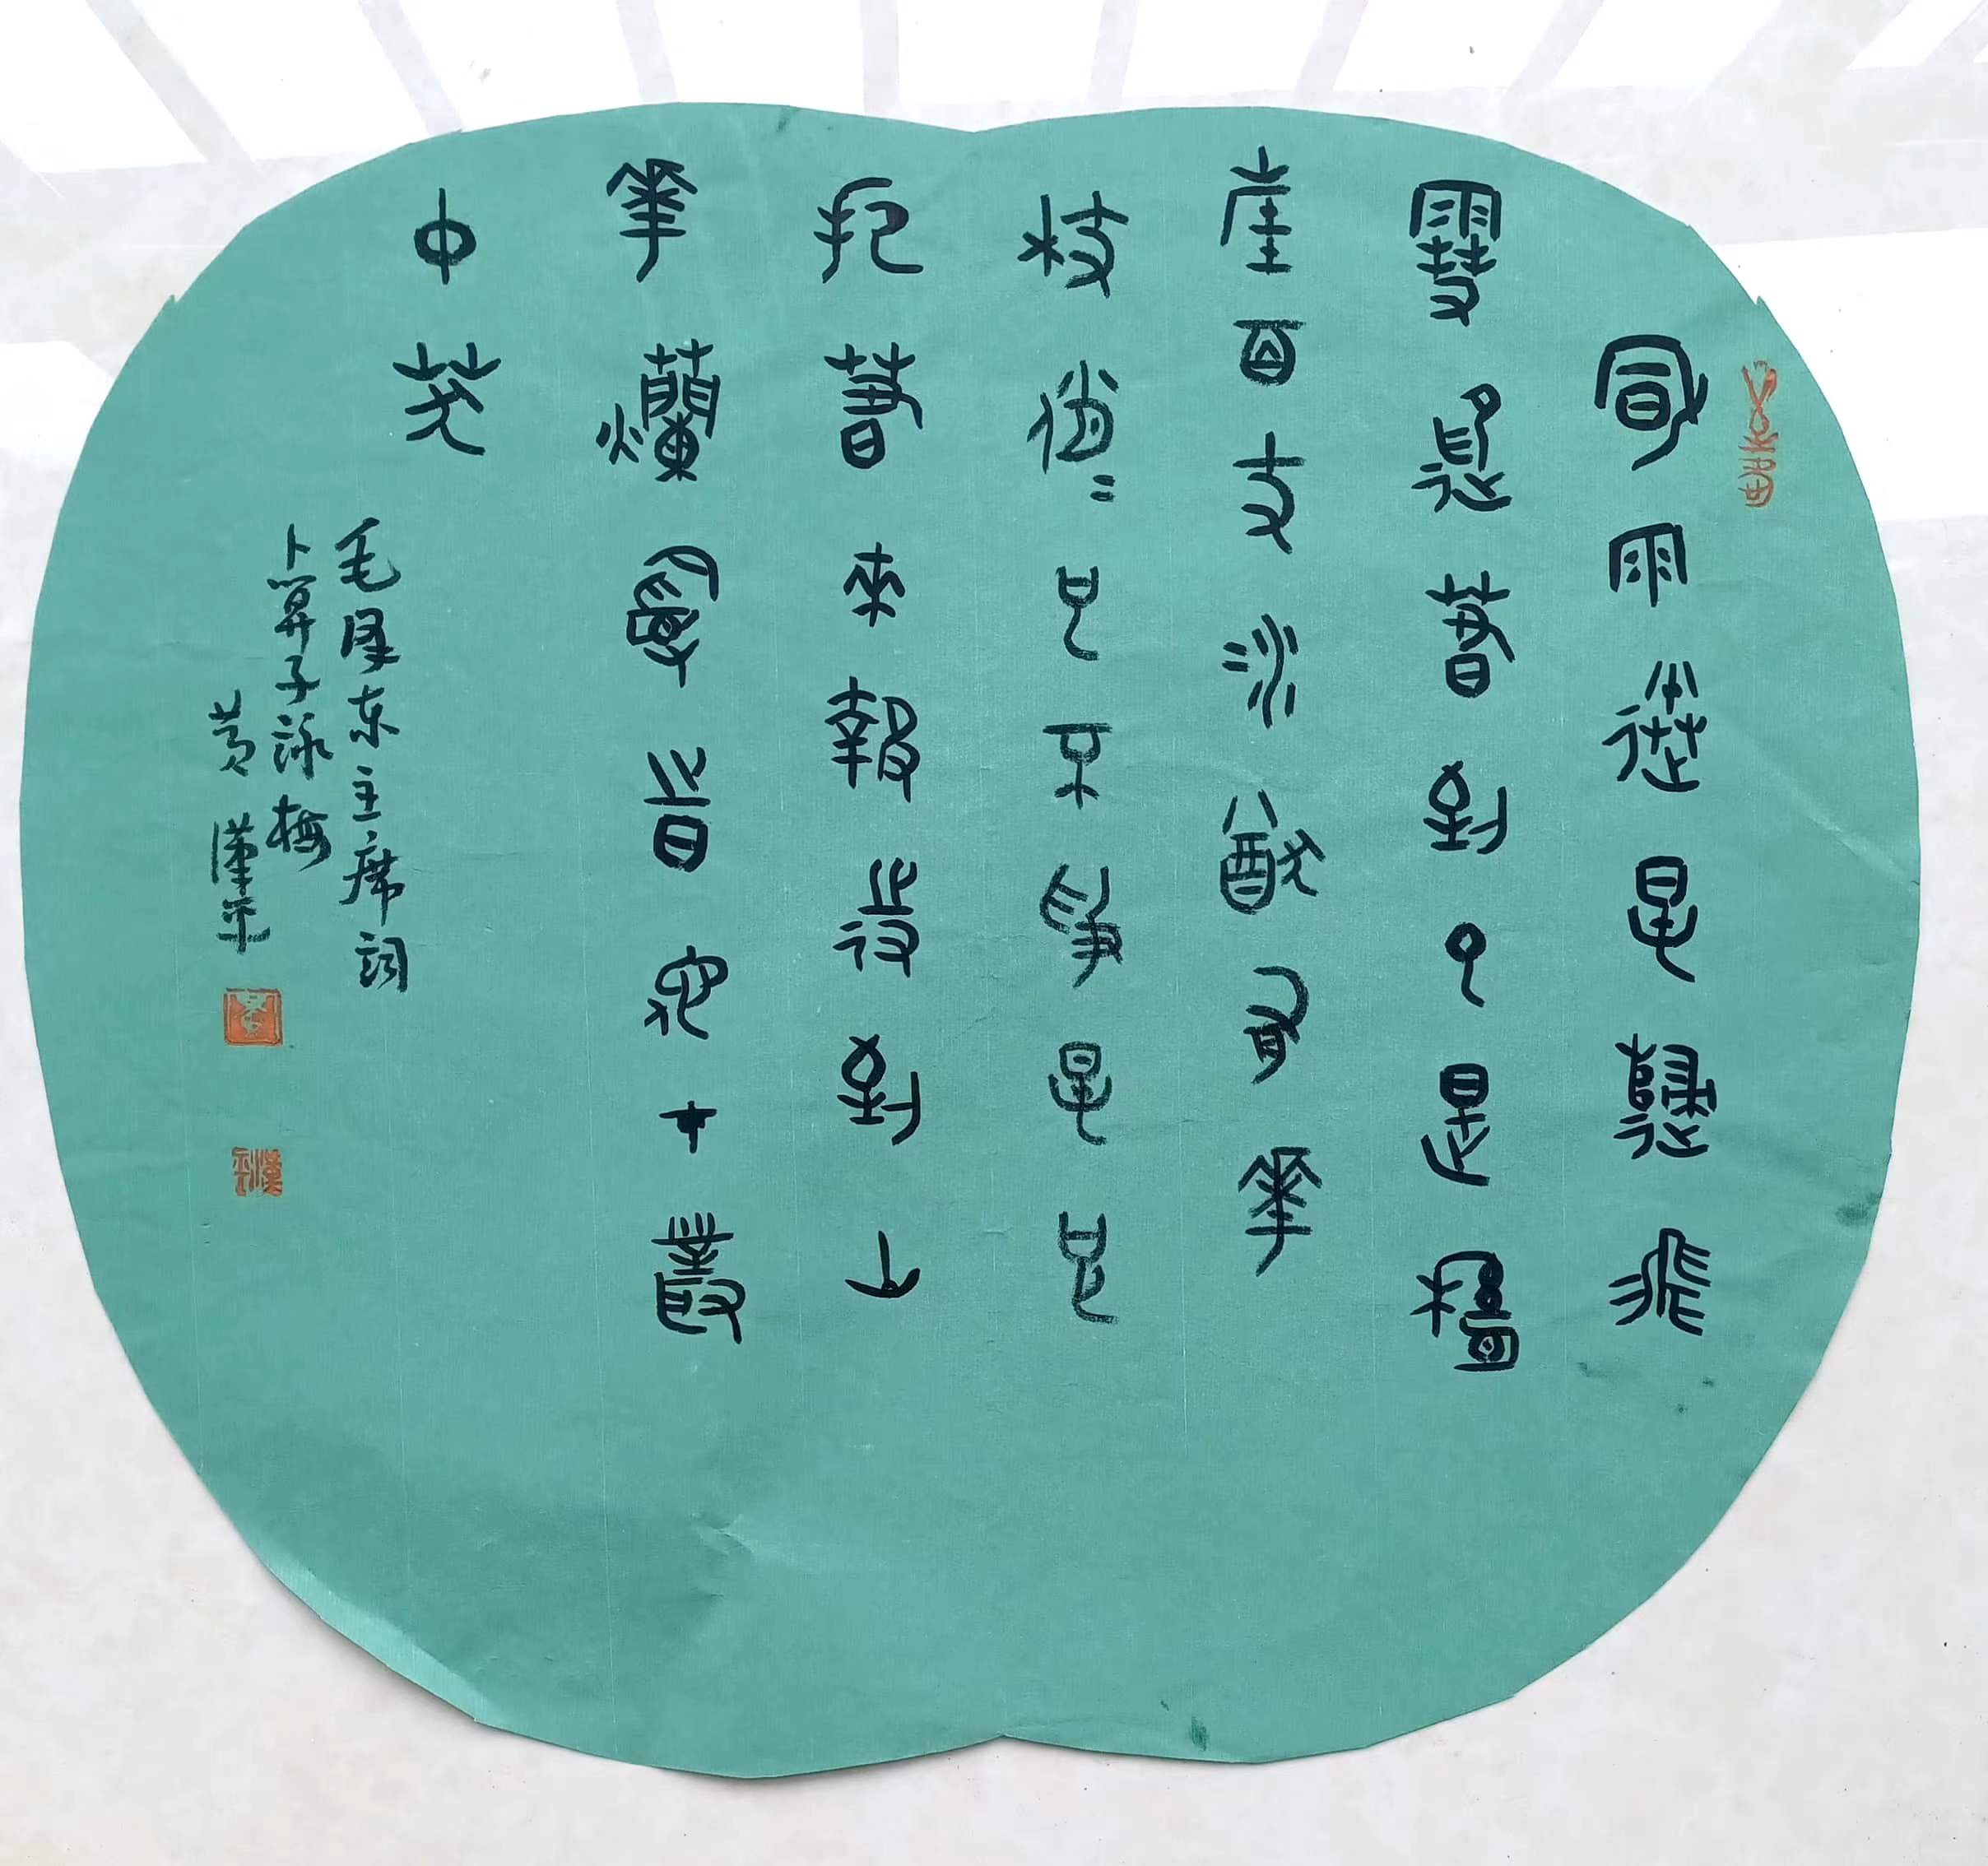 風雨送春歸飛
雪迎春到已是懸
崖百丈冰猶有華
枝俏〻也不爭春只
把春來報待到山
華爛漫時她在叢
中笑
毛澤东主席詞
卜算子詠梅
黄漢平